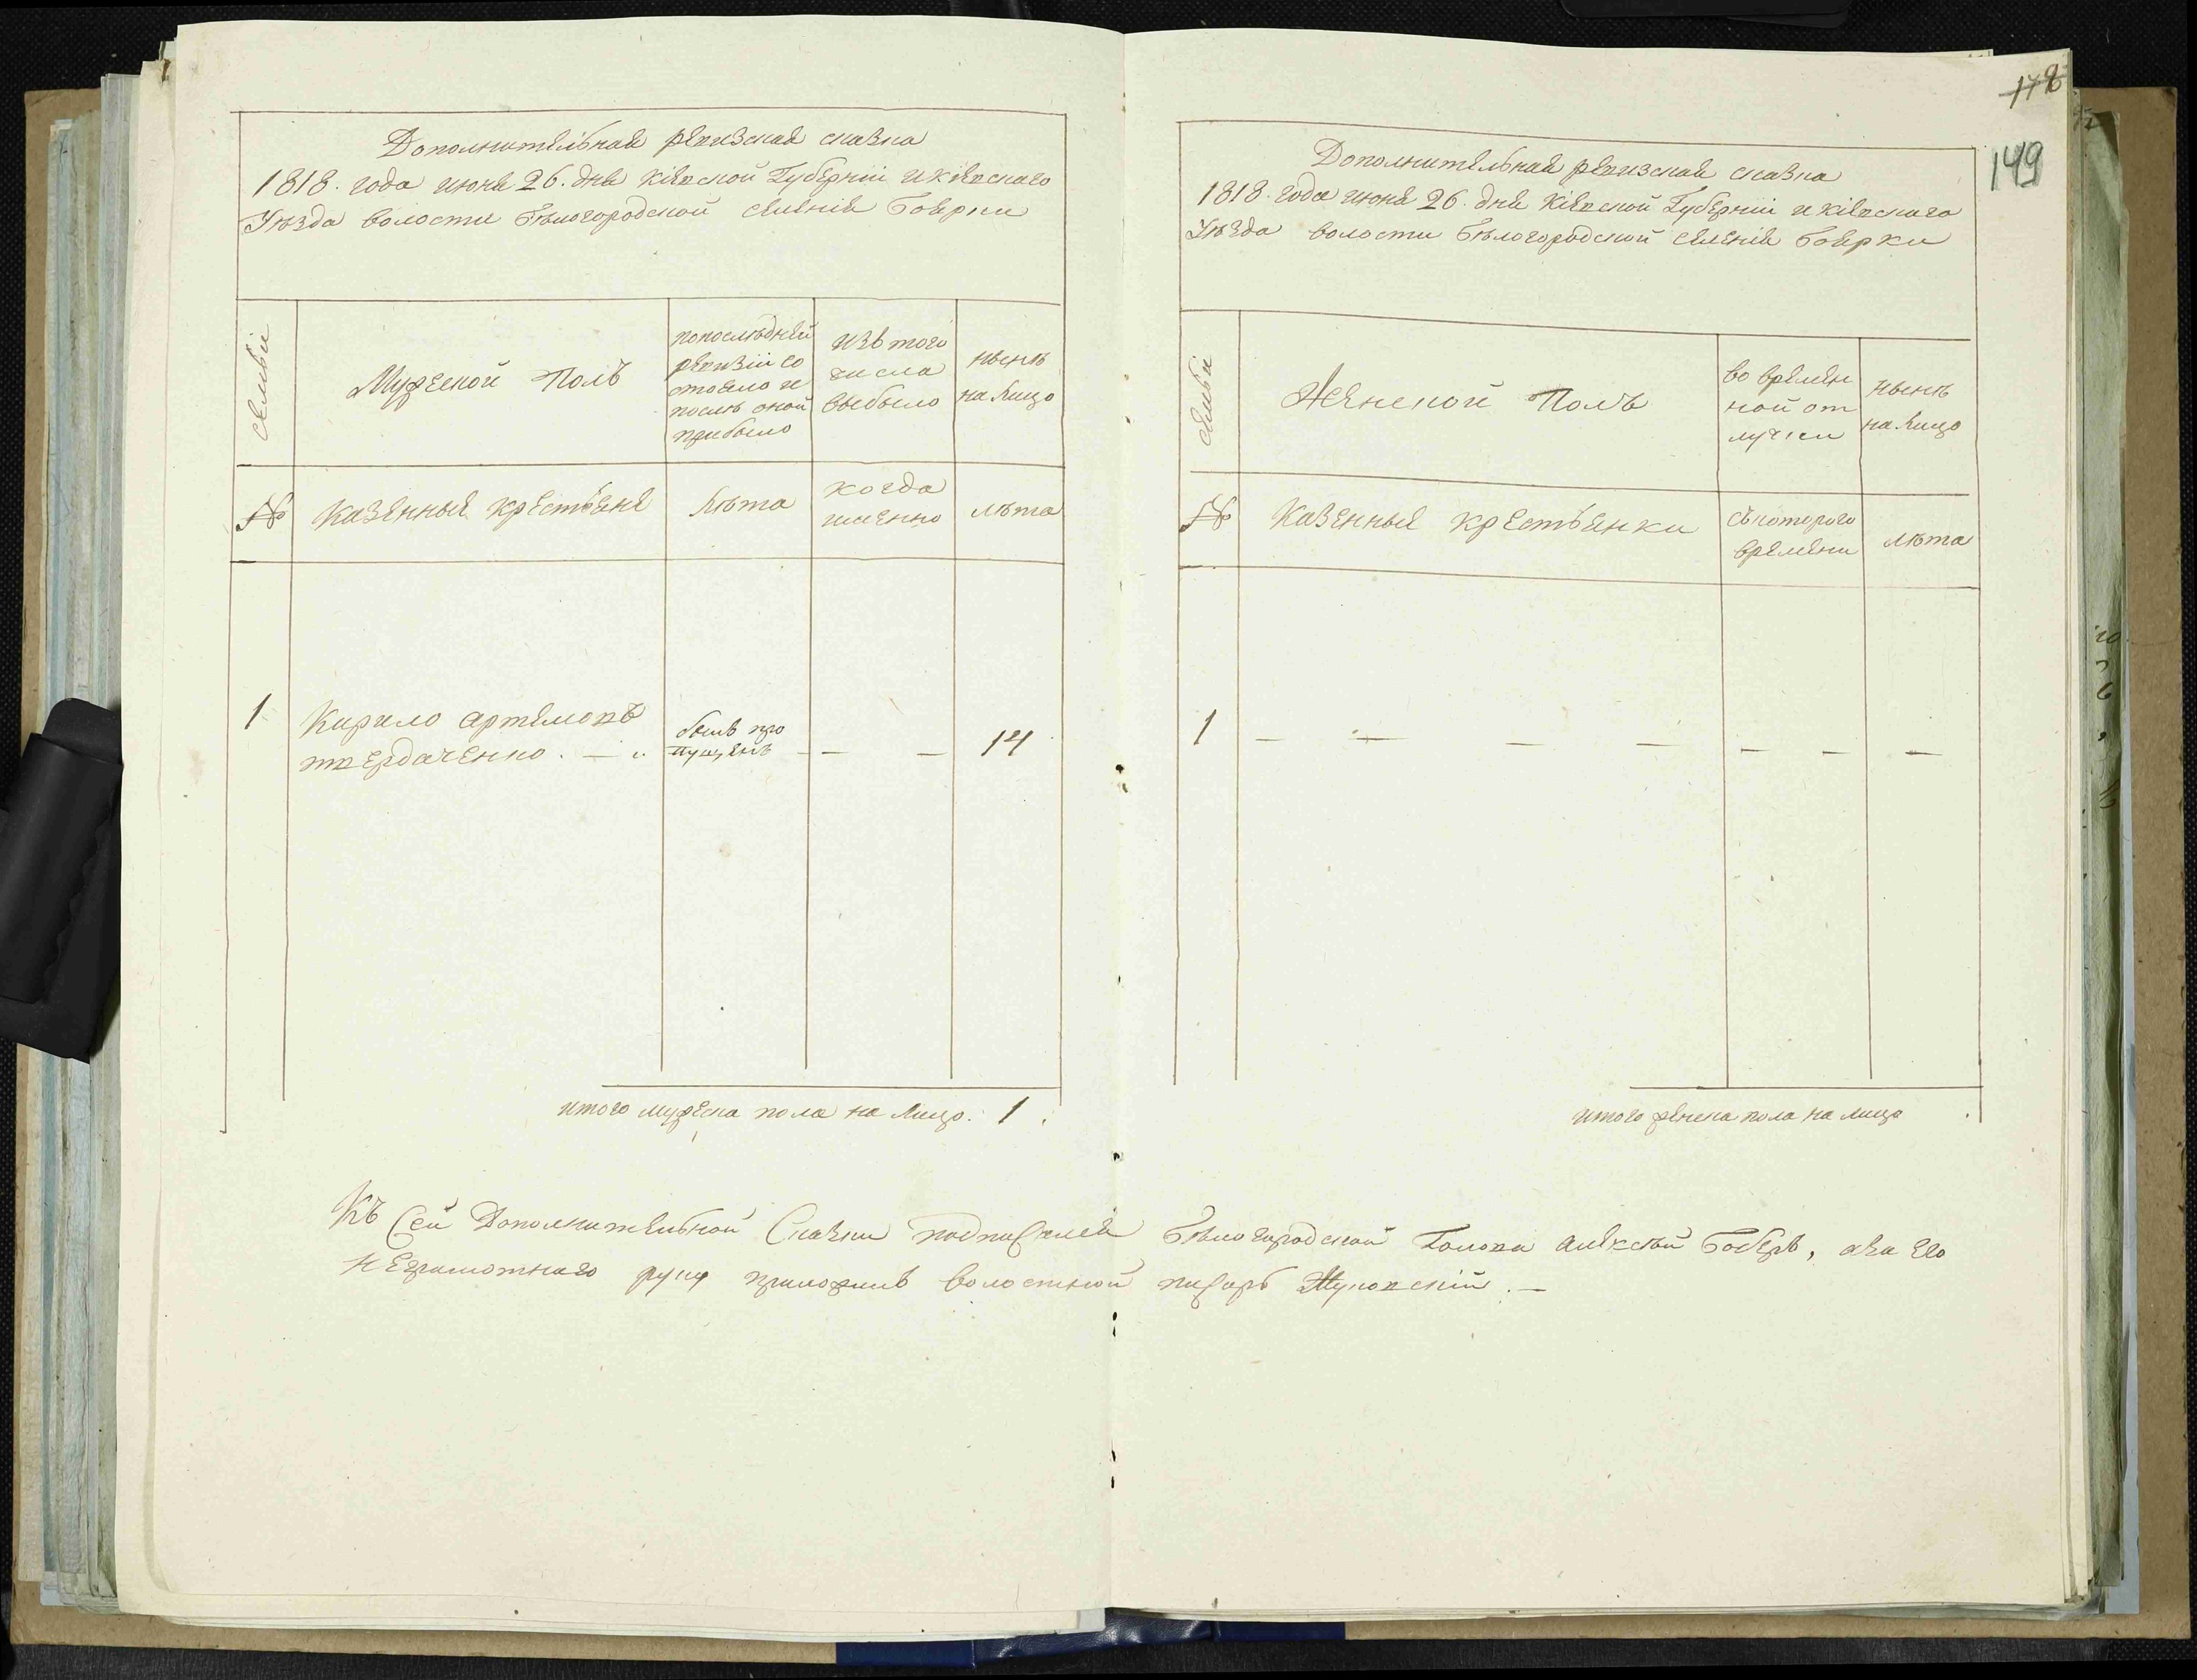 Дополнительная ревизская сказка
1818. года июня 26. дня Кіевской Губерніи и Кіевскаго
Уѣзда волости Бѣлогородской селенія Боярки
семьи
Мужеской Полъ
попослѣдней
ревизіи со
стояло и
послѣ оной
прибыло
изъ того
числа
выбыло
нынѣ
на лицо
№
Казенныя крестьяне
лѣта
когда
именно
лѣта
1
Кирило Артемовъ
твердаченко . — „
былъ про
пущенъ
— — —
14
итого мужеска пола на лицо. 1 .
178
149
Дополнительная ревизская сказка
1818. года июня 26. дня Кіевской Губерніи и Кіевскаго
Уѣзда волости Бѣлогородской селенія Боярки
семьи
Женской Полъ
во времен
ной от
лучки
нынѣ
на лицо
№
Казенныя крестьянки
съкоторого
времени
лѣта
1 — — — — — — —
итого женска пола на лицо
Къ Сей Дополнительной Сказки подписался Бѣлогородской Голова Алексѣй Боберъ, аза его
неграмотнаго руку приложилъ волостной писарь